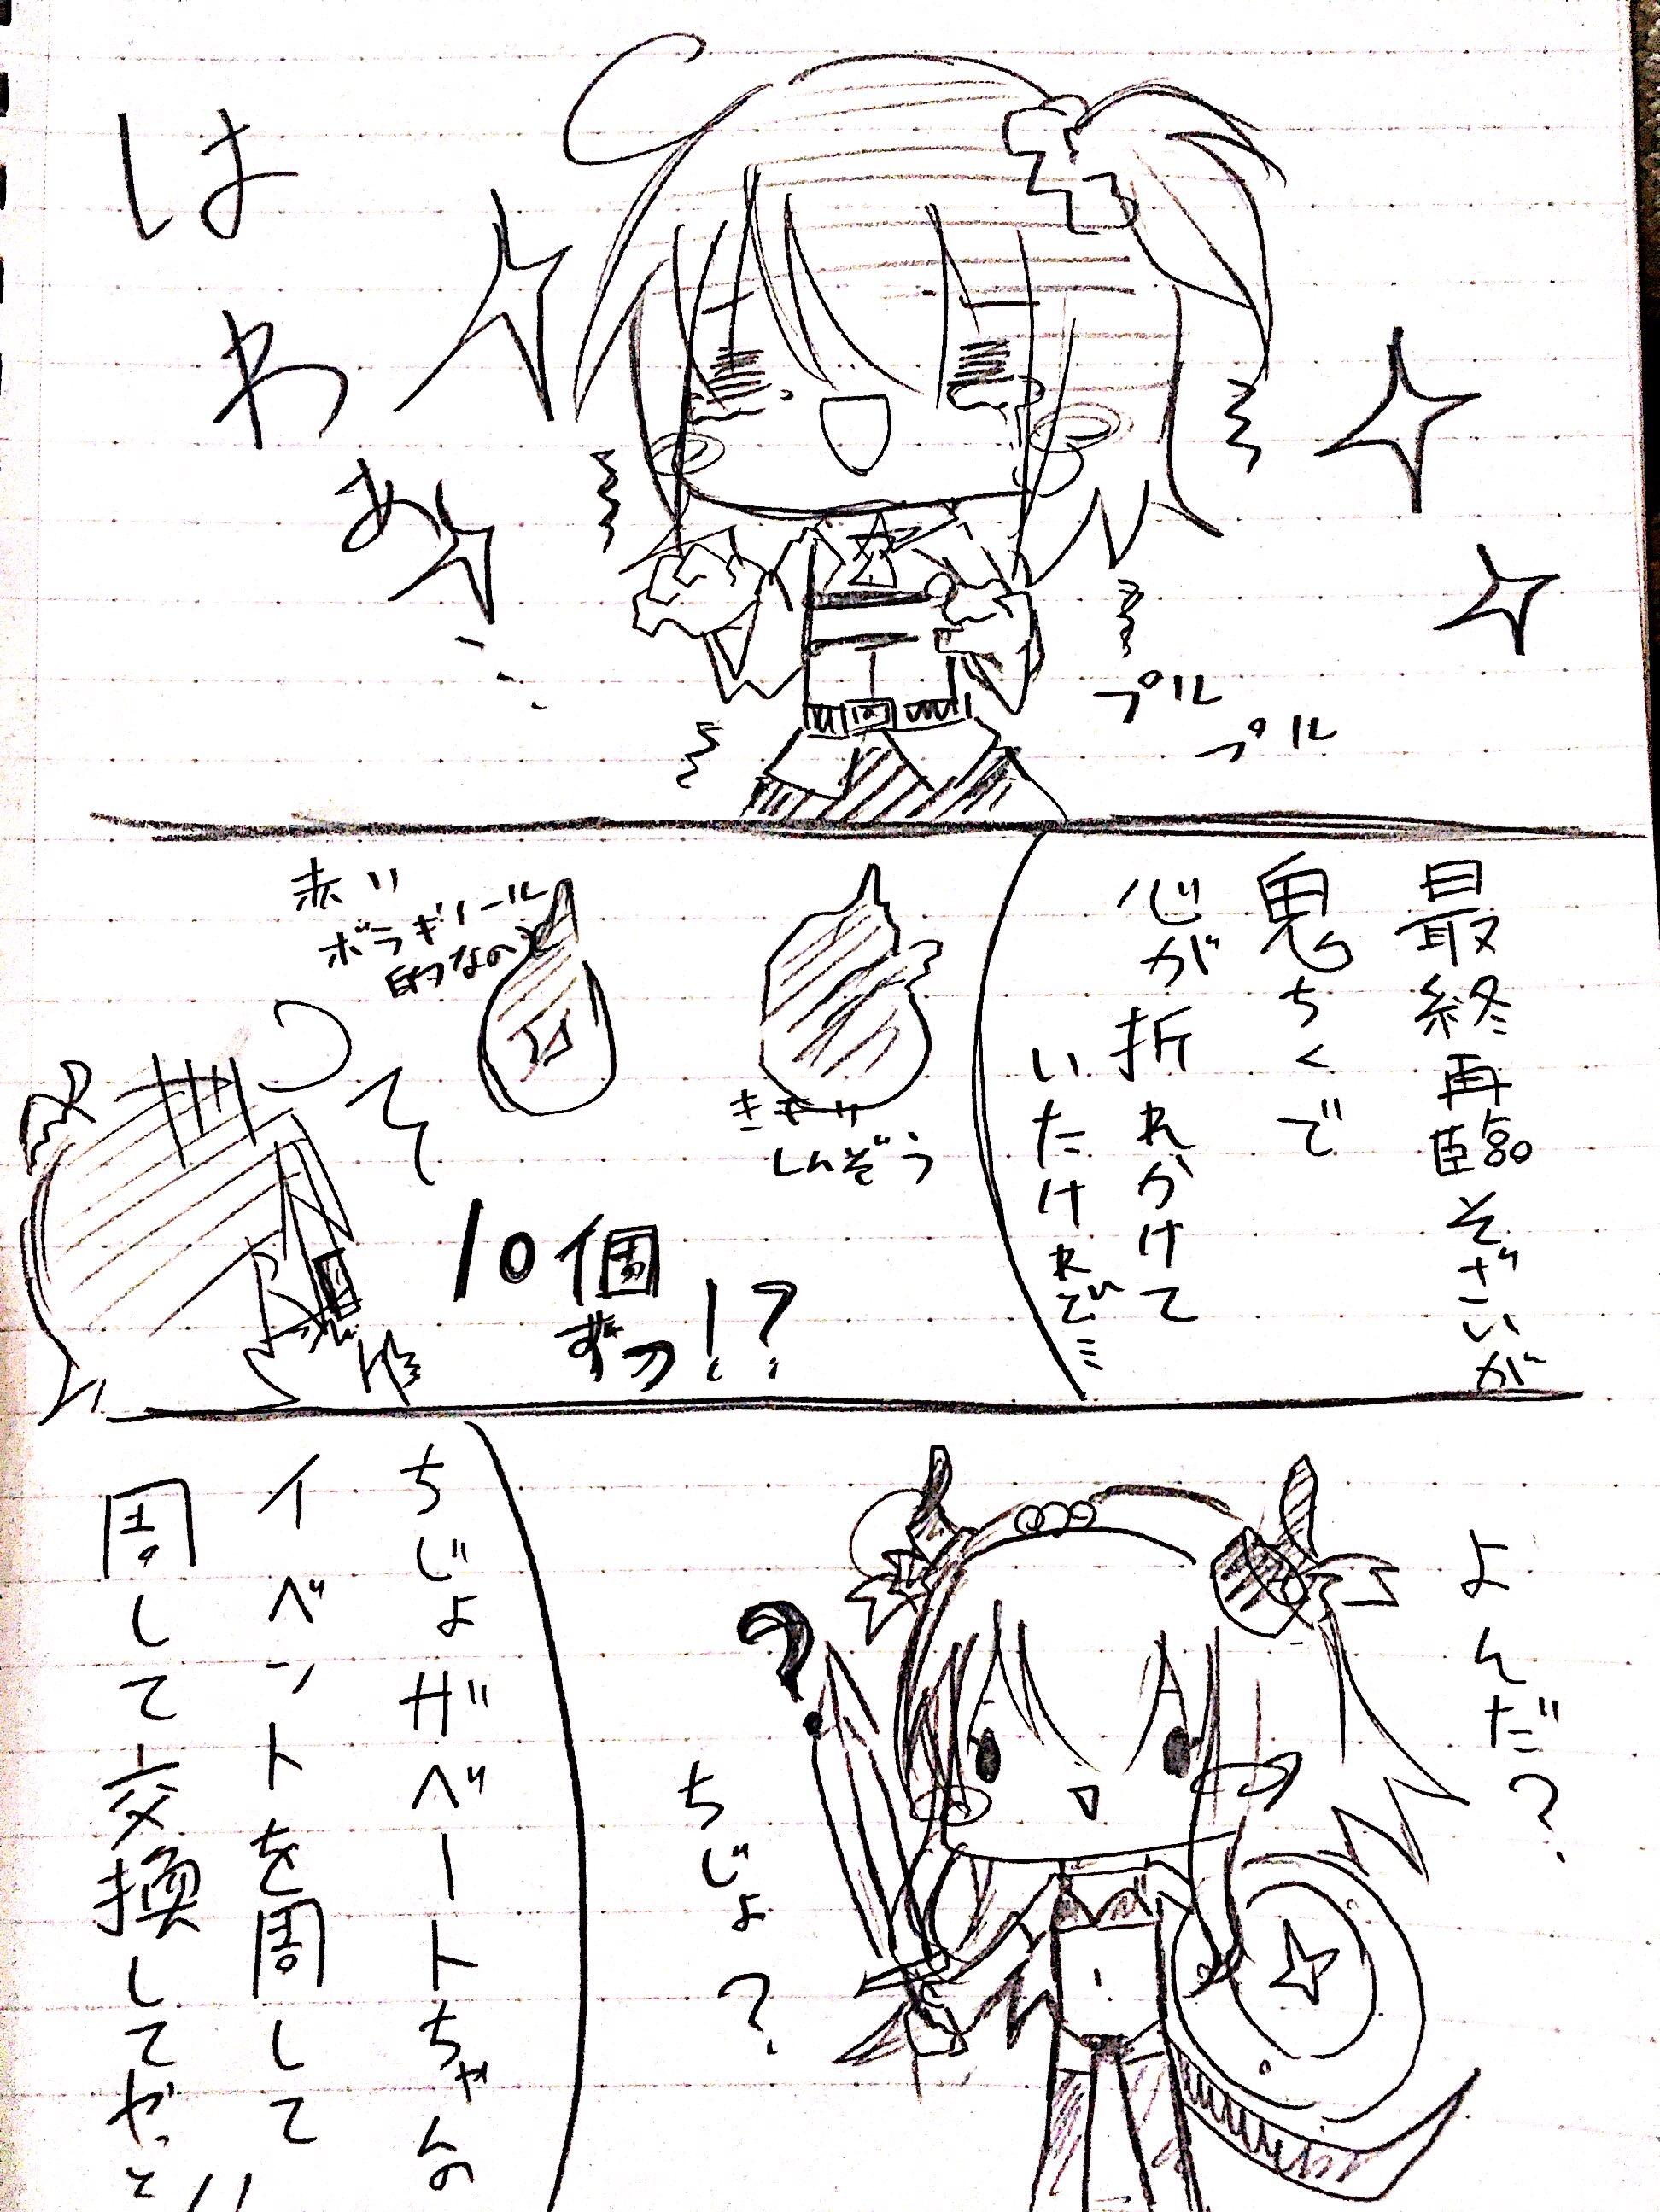 はわあ…
プル
プル
最終再臨そざいが
鬼ちくで
心が折れかけて
いたけれど…
きせき
しんぞう
赤い
ボラギノール
的なの
って
10個
ずつ!?
よんだ?
ちじょ?
ちじょガベートちゃんの
イベントを周して
周して交換してやっと!!